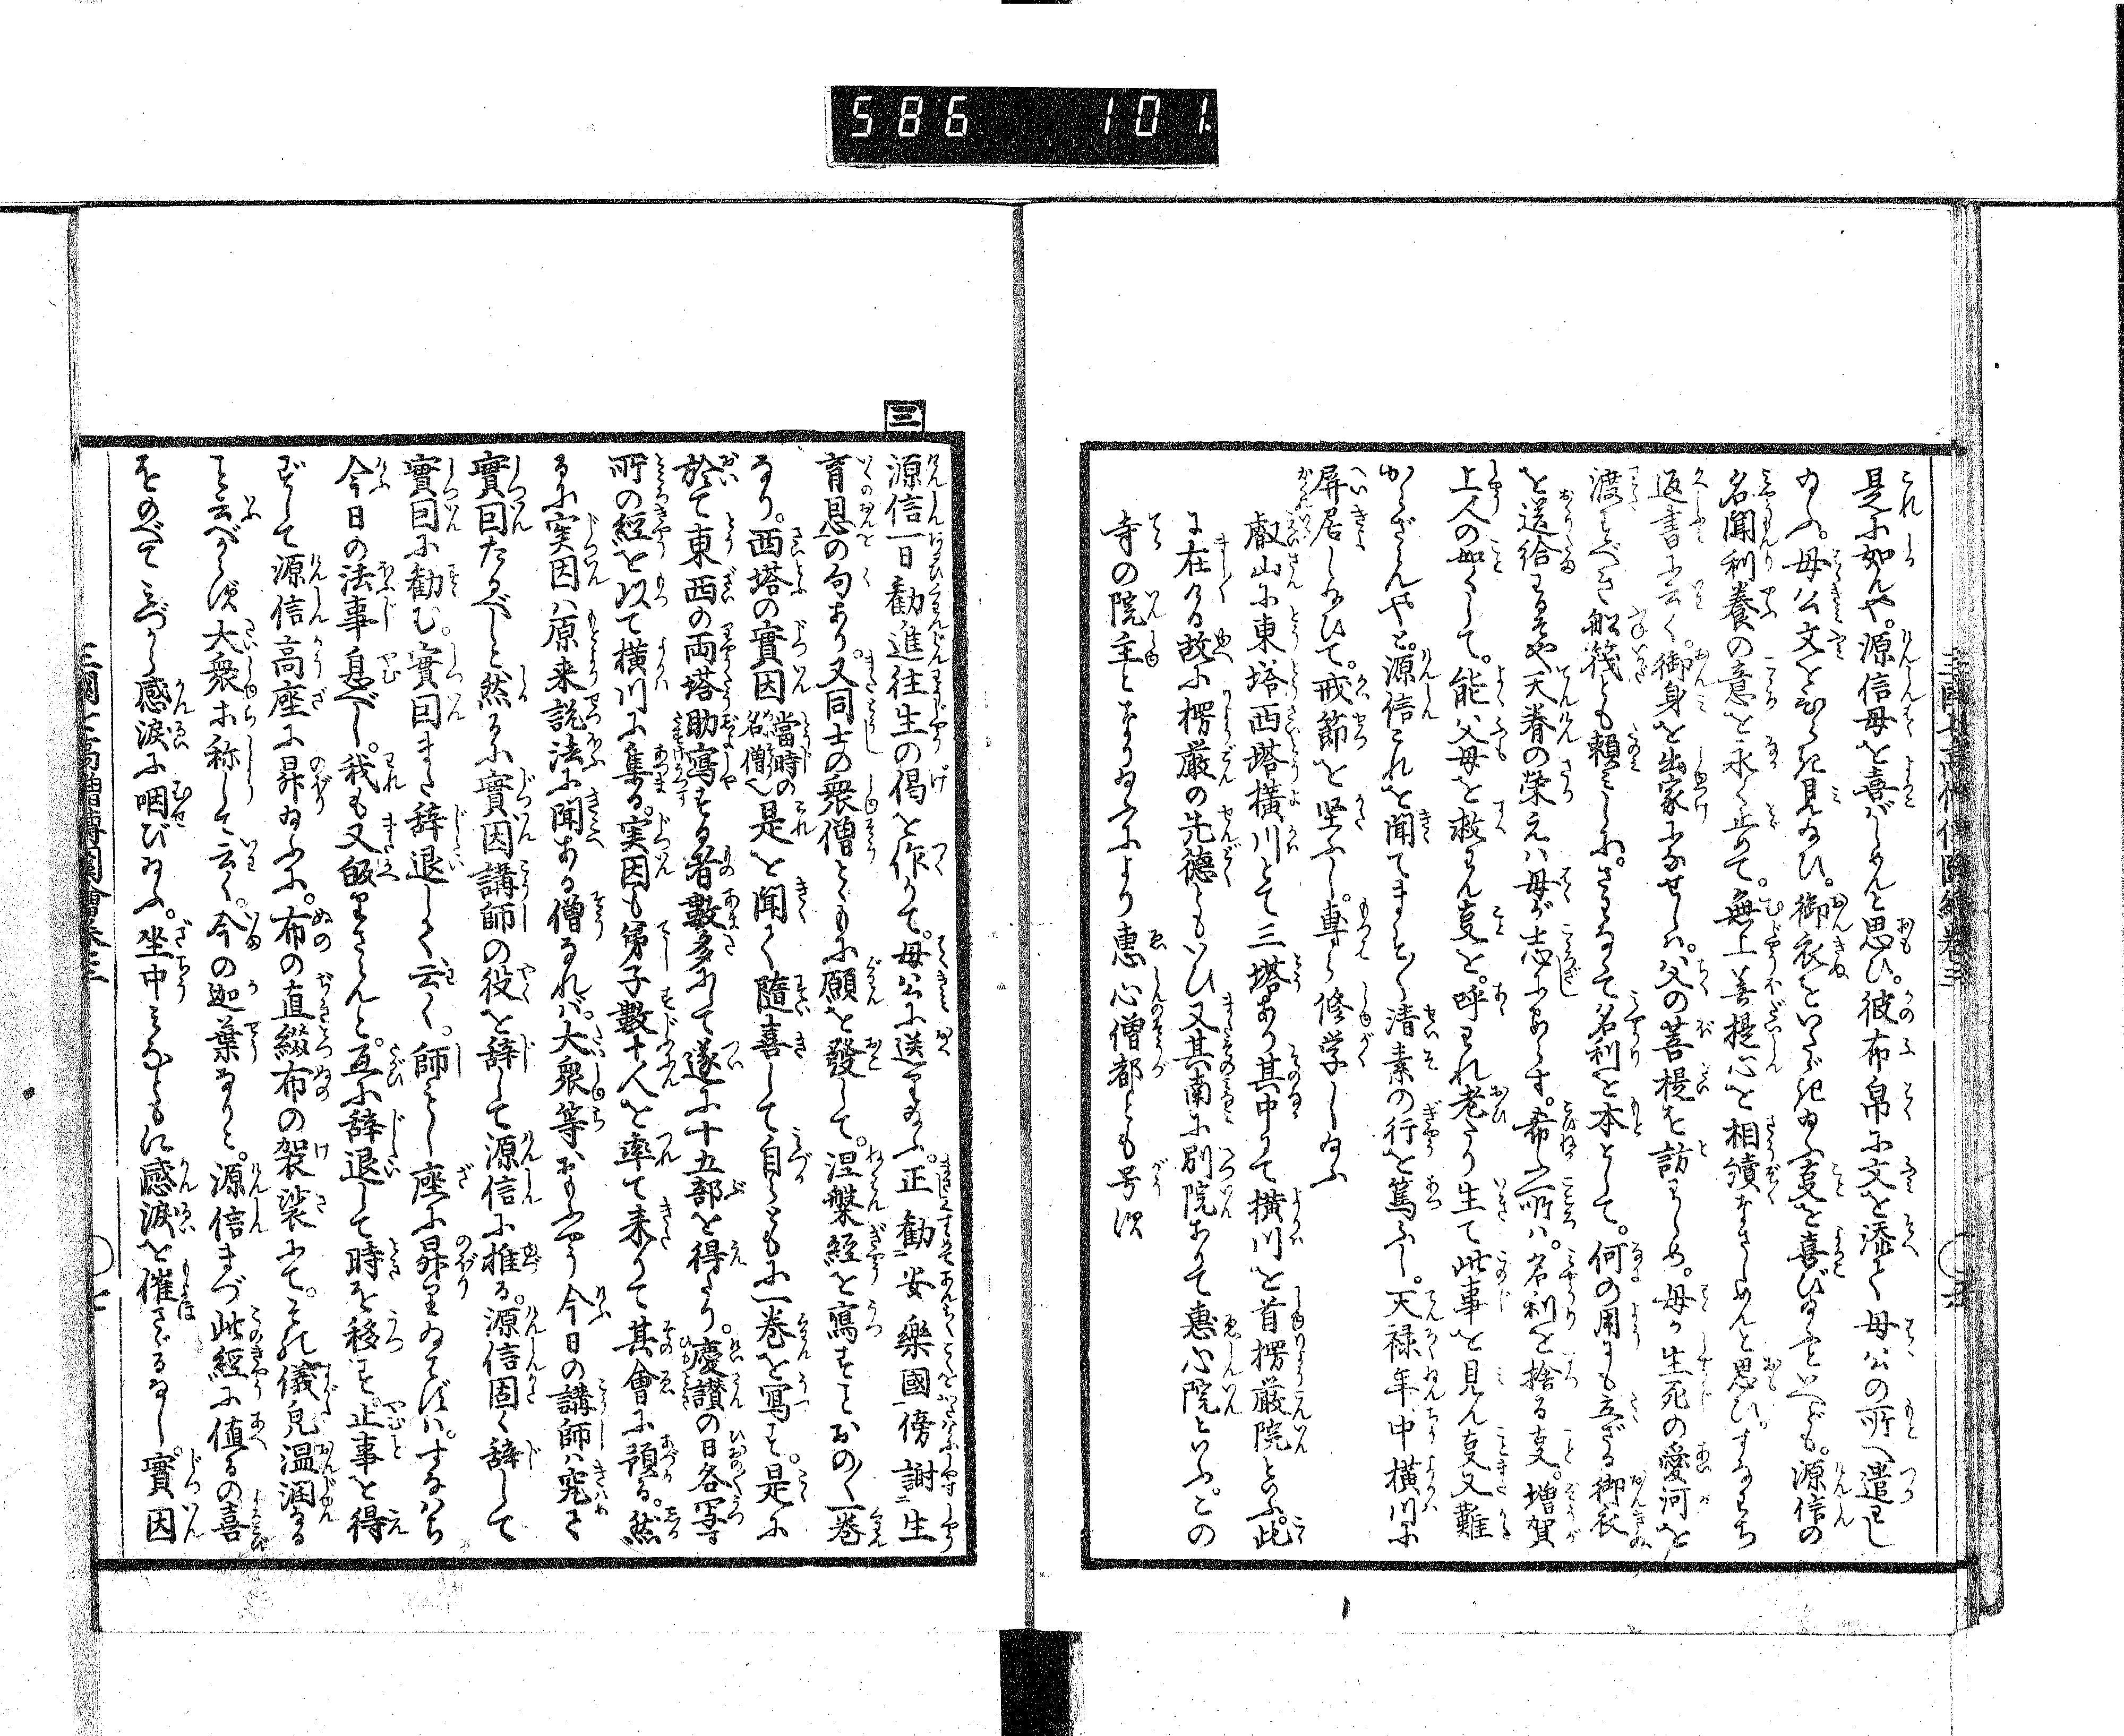 586 101.
是に如んや。源信母を喜ばしめんと思ひ。彼布帛に文を添て母公の所へ遣はし
ゐふ。母公文をひらき見ゐひ。御衣をいたゞきゐふ事を喜びゐふといへども。源信の
名聞利養の意を永く止めて。無上菩提心を相續なさしめんと思ひ。すなはち
返書に云く。御身を出家させしは。父の菩提を訪はしめ。母が生死の愛河を
渡すべき船筏とも頼みしに。さはなくて名利を本として。何の用にも立ざる御衣
を送給はるぞや天眷の栄えは母が志にあらず。希ふ所は。名利を捨る事。増賀
上人の如くして。能父母を救はん事を。呼われ老たり生て此事を見ん事又難
からざらんやと。源信これを聞てます〳〵清素の行を篤ふし。天禄年中横川に
屏居しゐひて。戒節を堅ふし。専ら修学しゐふ
叡山に東塔西塔横川とて三塔あり其中にて横川を首楞厳院といふ。此
に在ける故に楞厳の先徳ともいひ又其南に別院ありて惠心院といふ。この
寺の院主となりゐふより惠心僧都とも号す
三
源信一日勸進往生の偈を作りて。母公に送りゐふ。正勸安樂國傍謝生
育恩の句あり。又同士の衆僧とともに願を發して。涅槃經を寫すことおの〳〵一巻
なり。西塔の實因當時の名僧也是を聞く隨喜して自らともに一巻を寫す。是に
於て東西の両塔助寫する者數多にして遂に十五部を得たり。慶讃の日各写す
所の經を以て横川に集る。実因も弟子數十人を率て来りて其會に預る。然
るに実因は原来説法に聞ある僧なれば。大衆等おもふやう今日の講師は究て
實因たるべしと然るに實因講師の役を辞して源信に推る。源信固く辞して
實因に勸む。實因また辞退して云く。師もし座に昇りゐはずは。すなはち
今日の法事息べし。我も又皈りさらんと。互に辞退して時を移す。止事を得
ずして源信高座に昇ゐふに。布の直綴布の袈裟にて。その儀皃温潤なる
こと云べからず大衆ホ称して云く。今の迦葉なりと。源信まづ此經に値るの喜
をのべてみづから感涙に咽びゐふ。坐中みなともに感涙を催さゞるなし。實因
三國七高僧傳圖會巻三